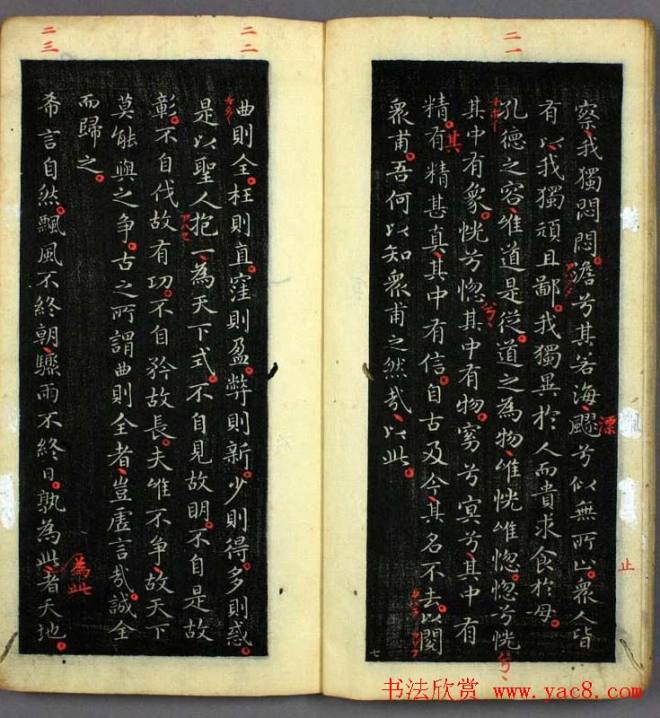 二一
察我獨悶悶澹兮其若海飂兮似無所止衆人皆
漂
止
有以我獨頑且鄙我獨異於人而貴求食於母
孔德之容唯道是從道之為物唯恍唯惚惚兮恍
兮
其中有象恍兮惚其中有物窈兮冥兮其中有
兮
其
精有精甚真其中有信自古及今其名不去以閱
衆甫吾何以知衆甫之然哉以此
七
二二
曲則全枉則直窪則盈弊則新少則得多則惑
是以聖人抱一為天下式不自見故明不自是故
彰不自伐故有功不自矜故長夫唯不争故天下
莫能與之争古之所謂曲則全者豈虛言哉誠全
而歸之
二三
希言自然飄風不終朝驟雨不終日孰為此者天地
為此
书法欣赏 www.yac8.com